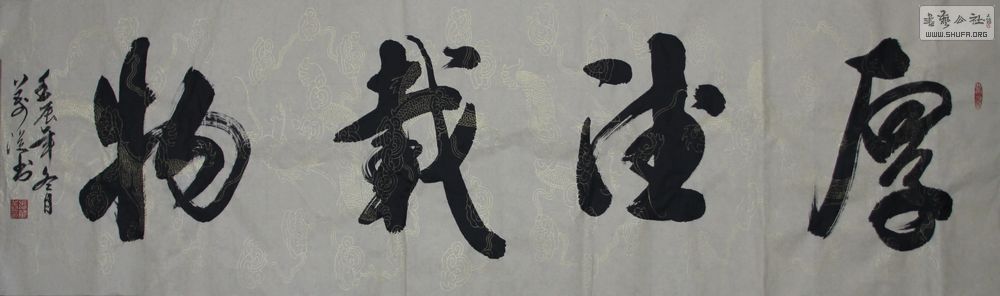 厚德載物
壬辰年冬月
书
书艺公社
WWW.SHUFA.ORG